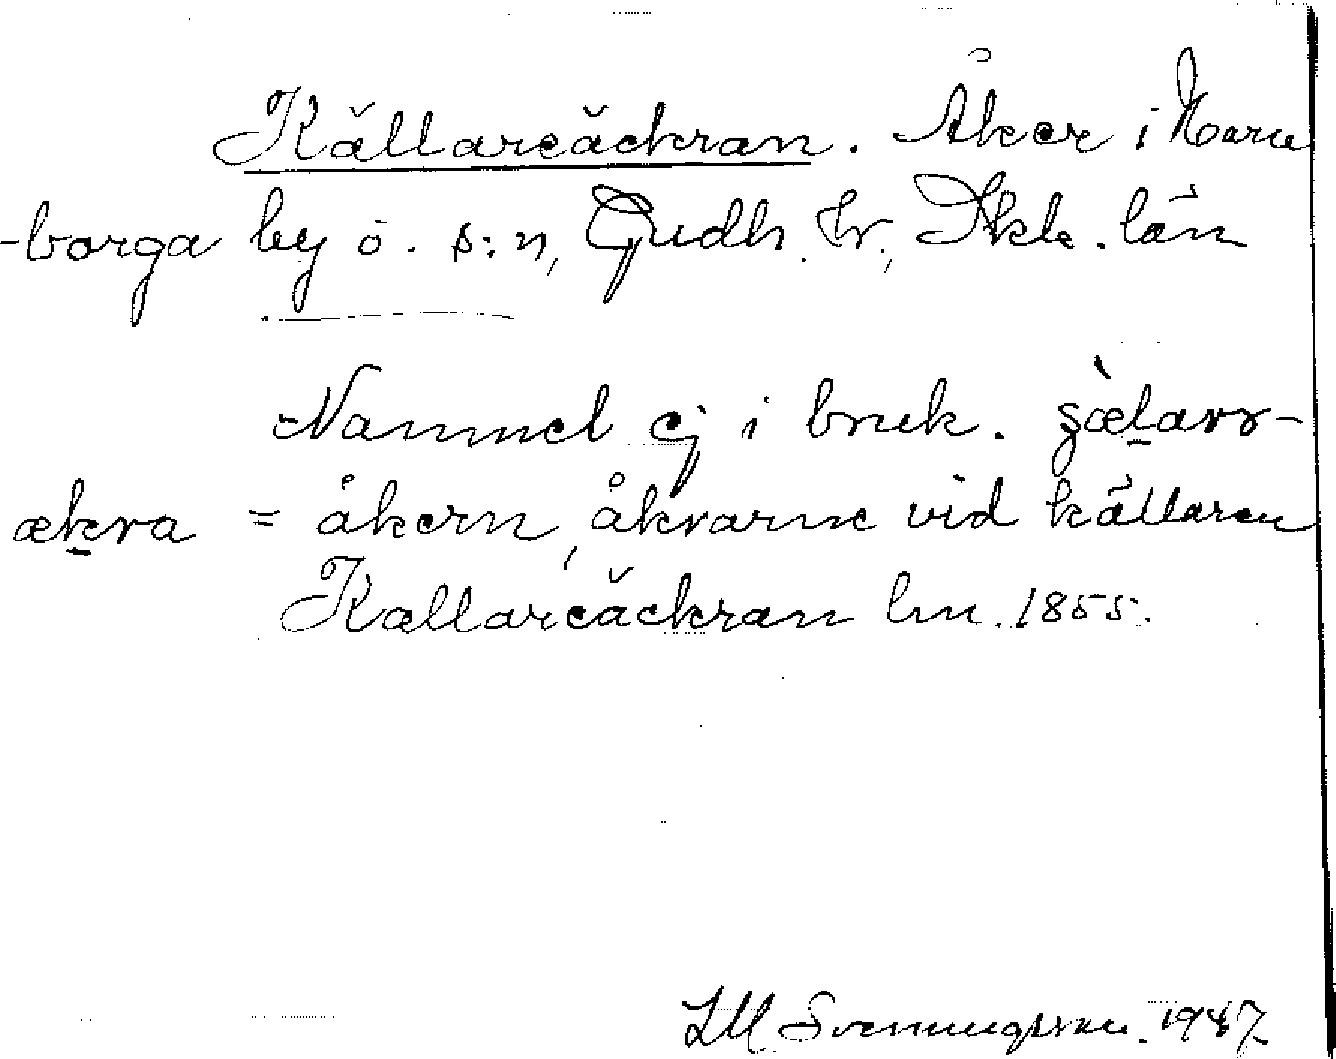 Källareäckran. Åker i Marie
-borga by ö. s:n, Gudh. hr, Skbl. län
Namnet ej i bruk. şælarr-
ækra = åkern, åkrarne vid källaren
Källareäckran lm. 1855.
LM Svenungsson 1947